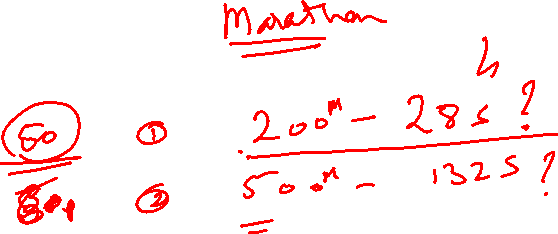 Marathon
60 ① 200m - 28s ?
② 500m - 132s ?